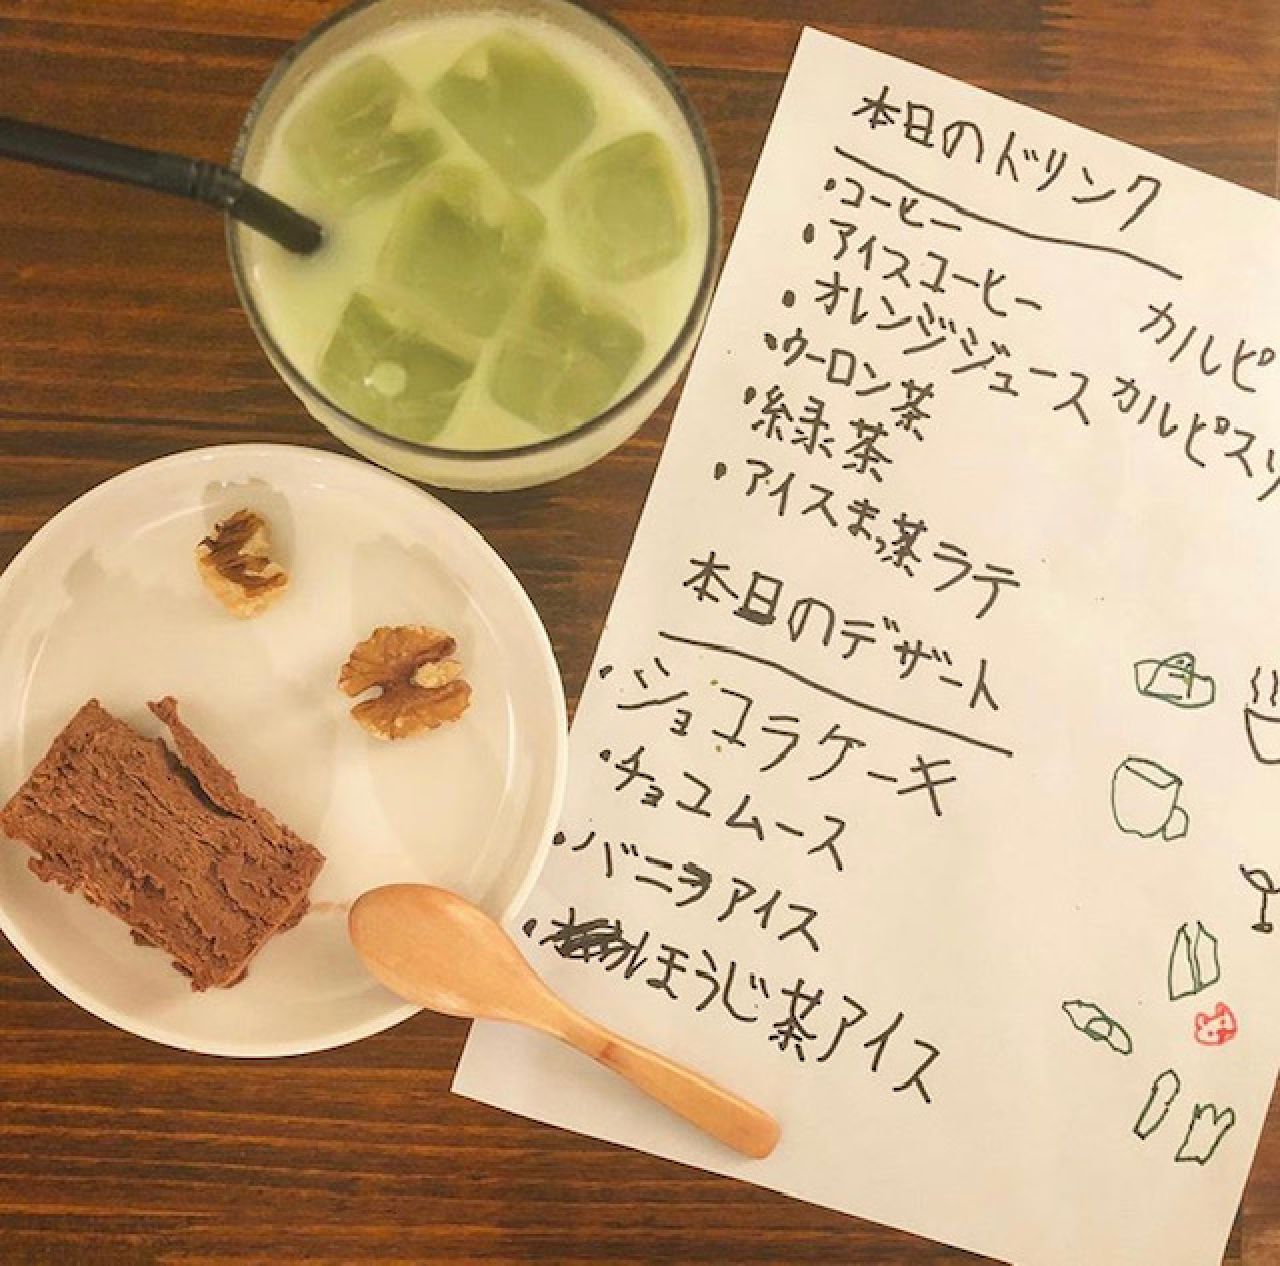 本日のドリンク
・コーヒー
・アイスコーヒー
・オレンジジュース
・ウーロン茶
・緑茶
・アイスまっ茶ラテ
カルピ
カルピスソ
本日のデザート
・ショコラケーキ
・チョコムース
・バニラアイス
・ほうじ茶アイス